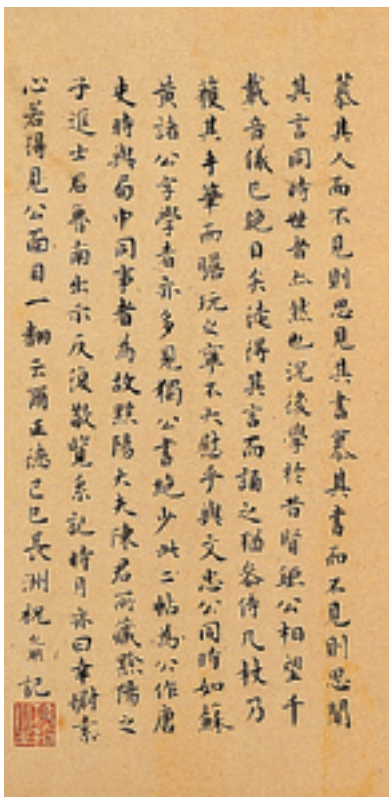 慕其人而不見則思見其書慕其書而不見則思聞
其言同時世者亦然也況後學於昔賢歐公相望千
載音儀已絕目矣後得其言而誦之猶若侍几杖乃
獲其手筆而賜玩之寧不大慰乎與文忠公同時如蘇
黃諸公字學者亦多見獨公書絕少此二帖為公作唐
史時與局中同事者為故黔陽大夫陳君所藏黔陽之
子進士君魯南出示反復敬覽系記時月亦曰幸酬素
心若得見公面目一翻云爾正德己巳長洲祝允明記